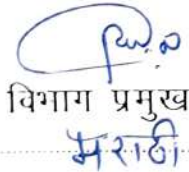 विभाग प्रमुख
मराठी